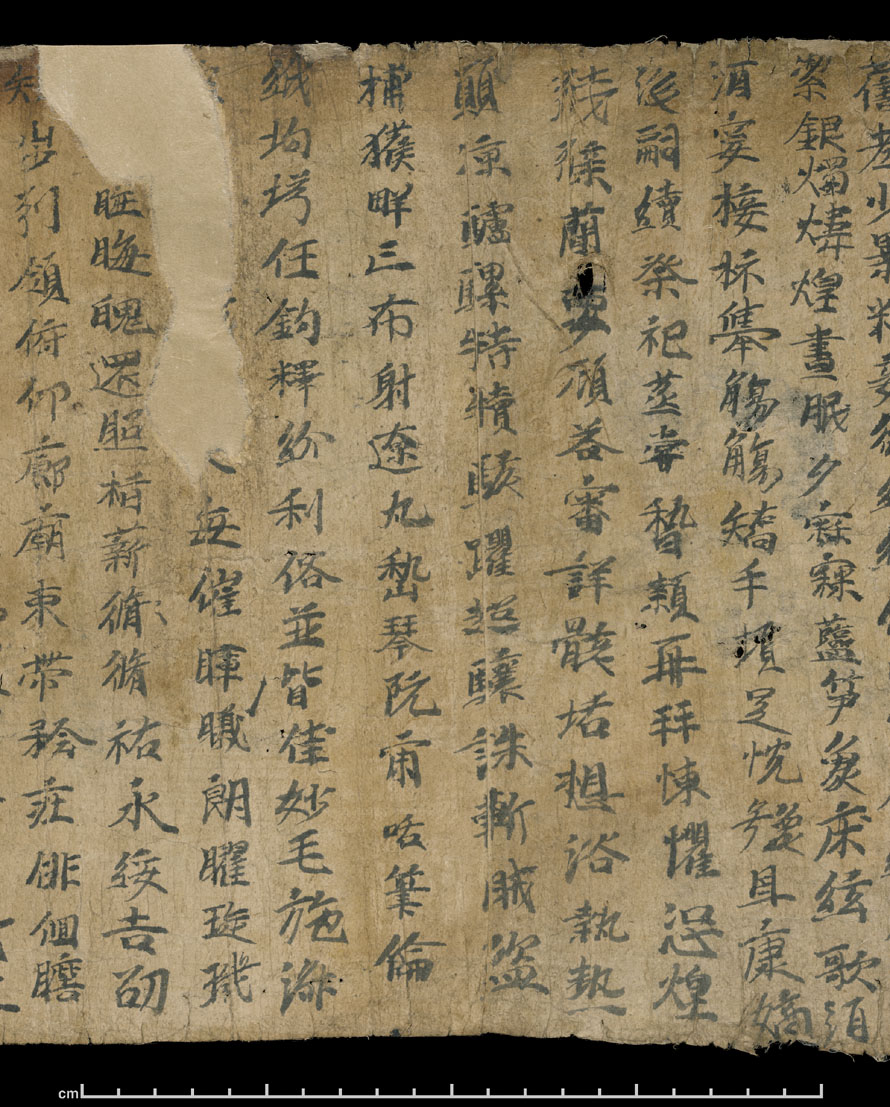 舊老少異粮妾御績
絜銀燭煒煌晝眠夕寐寐藍笋象床絃歌酒
酒宴接杯舉觴觴矯手頓足悅豫且康嫡
後嗣續祭祀蒸甞稽顙再拜悚懼恐煌
牋牒簡要顧荅審詳骸垢想浴執熱
願凉驢騾特犢駭躍超驤誅斬賊盜
捕獲畔亡布射遼丸嵇琴阮甯恬筆倫
紙均巧任鈞釋紛利俗並皆佳妙毛施淑
每催暉曦朗曜琁璣
晦魄還照指薪脩脩祐永綏吉劭
矩步引領俯仰廊廟束帶矜庄俳佪瞻